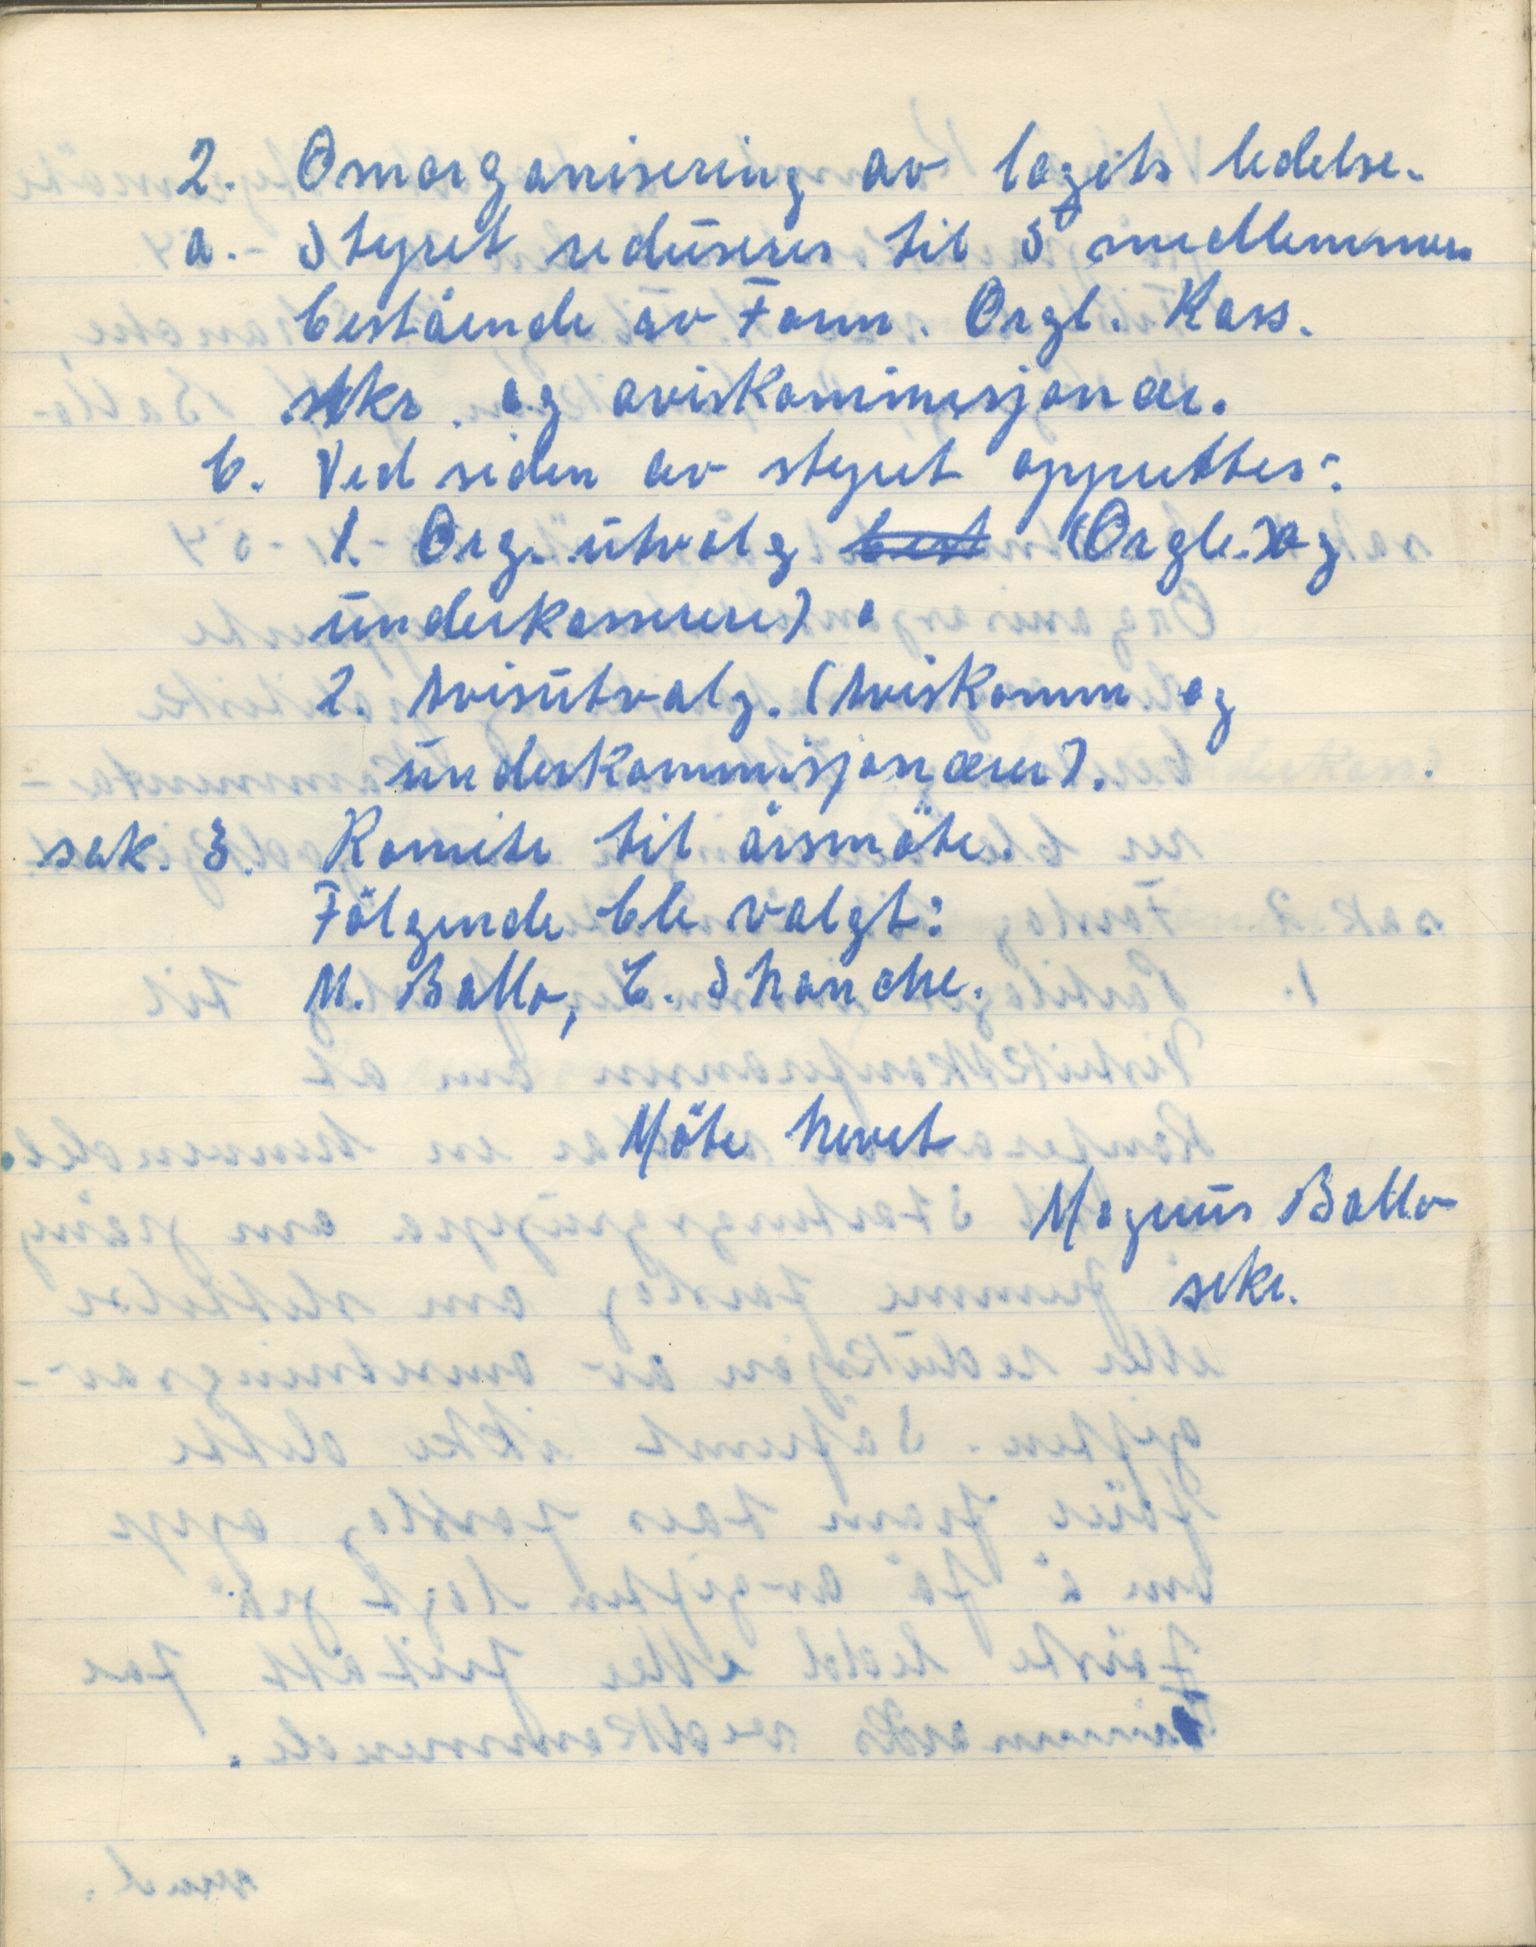 2. Omorganisering av lagets ledelse.
a. Styret redüseres til 5 medlemmer
bestående av Form. Orgl. Kass.
sekr. og aviskommisjonær.
b. Ved siden av styret opprettes:
1. Org. ütvalg best (Orgl.) og
ünderkasserere).
2. Avisütvalg. (Aviskomm. og
ünderkommisjonærer).
sak. 3. Komite til årsmöte.
Fölgende ble valgt:
M. Ballo, E. Skanche.
Möte hevet
Magnüs Ballo
sekr.